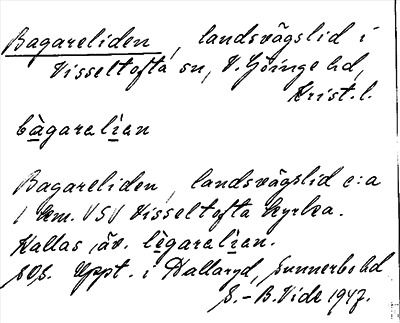 Bagareliden, landsvägslid i
Visseltofta sn, V. Göinge hd,
Krist. l.
bàgaralìan
Bagareliden, landsvägslid c:a
1 km. VSV Visseltofta kyrka.
Kallas äv. lègaralìan.
SOS. Uppt. i Hallaryd, Sunnerbo hd
S.-B. Vide 1947.